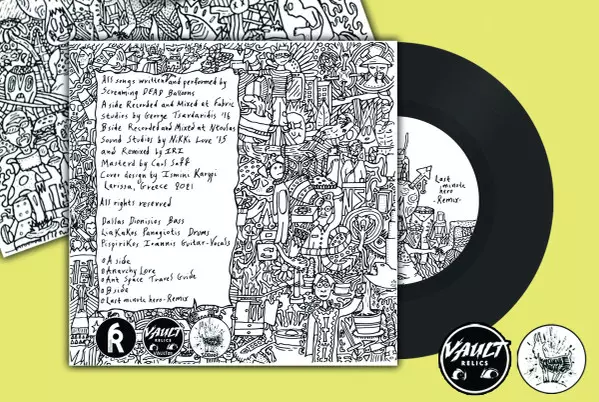 All songs written and performed by
Screaming DEAD Balloons
A side Recorded and Mixed at Fabric
studios by George Tsardaridis '16
B side Recorded and Mixed at Ntoulas
Sound Studios by Nikki Love '15
and Remixed by IRI
Masterd by Carl Saff
Cover design by Ismini Karggi
Larissa, Greece 2021
All rights reserved
Dallas Dionisios Bass
Liakakos Panagiotis Drums
Pispirikos Ioannis Guitar-Vocals
A side
Anarchy Love
Ant Space Travel Guide
B side
Last minute hero-Remix
VAULT
RELICS
Last minute
hero
-Remix-
VAULT
RELICS